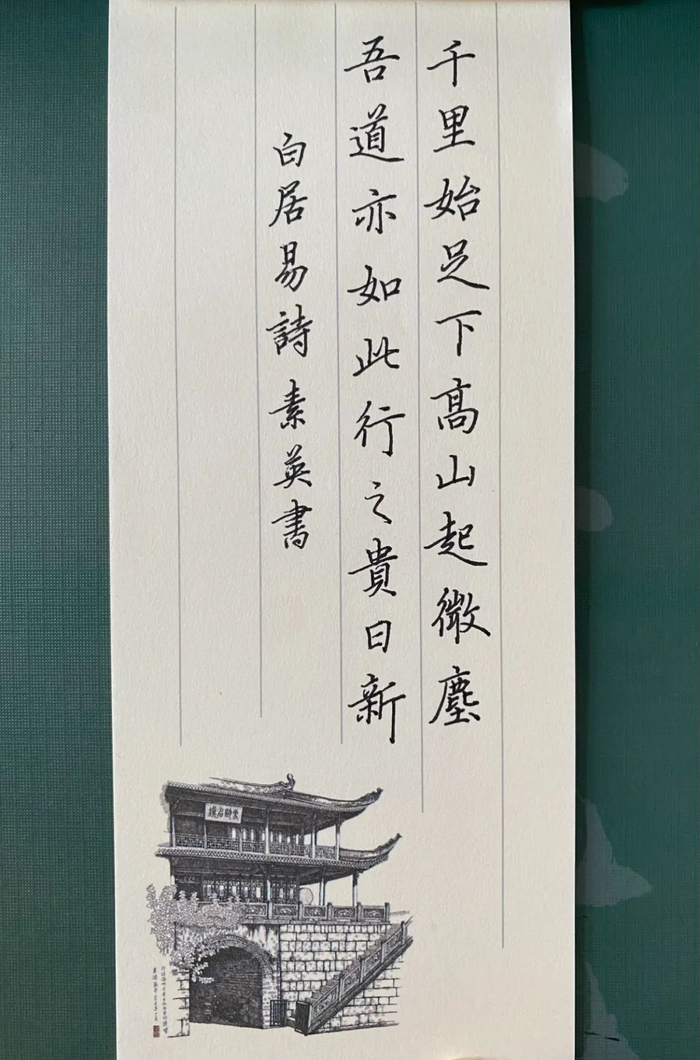 千里始足下高山起微塵
吾道亦如此行之貴日新
白居易詩 素英書